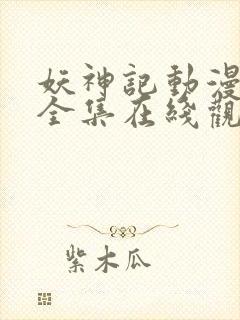 妖神記動漫
全集在綫觀
紫木瓜